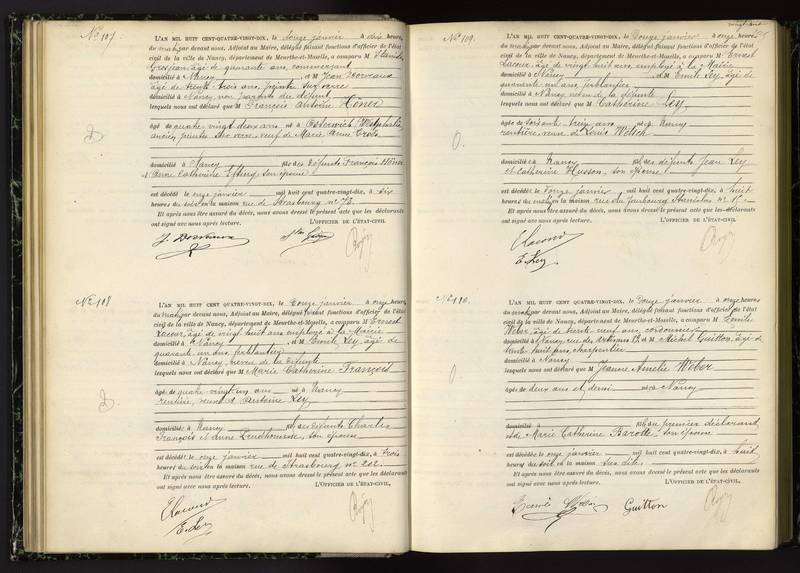 No 107
L'AN MIL HUIT CENT QUATRE-VINGT-DIX, le douze janvier à dix heures
du matin par devant nous, Adjoint au Maire, délégué faisant fonctions d'officier de l'état
civil de la ville de Nancy, département de Meurthe-et-Moselle, a comparu M Stanislas
Grosjean, âgé de quarante ans, commerçant
domicilié à Nancy, et M Jean
âgé de trente-trois ans, peintre sur verre
domicilié à Nancy, non parents du défunt
lesquels nous ont déclaré que François Antoine Höner
âgé de quatre-vingt-deux ans né à Osterwich, Westphalie
ancien peintre sur verre, veuf de Marie Anne
domicilié à Nancy fils des défunts François Höner
et Anne Catherine Efting, son épouse
est décédé le onze janvier mil huit cent quatre-vingt-dix, à six
heures du soir en la maison rue de Strasbourg no 72
Et après nous être assuré du décès, nous avons dressé le présent acte que les déclarants
ont signé avec nous après lecture. L'OFFICIER DE L'ÉTAT-CIVIL,
No 108
L'AN MIL HUIT CENT QUATRE-VINGT-DIX, le douze janvier à onze heures
du matin par devant nous, Adjoint au Maire, délégué faisant fonctions d'officier de l'état
civil de la ville de Nancy, département de Meurthe-et-Moselle, a comparu M Ernest
Lacour, âgé de vingt huit ans employé à la Mairie
domicilié à Nancy, et M Emile Ley, âgé de
quarante un ans, ferblantier
domicilié à Nancy, neveu de la défunte
lesquels nous ont déclaré que Marie Catherine François
âgée de quatre vingt un ans née à Nancy
rentière, veuve d'Antoine Ley
domiciliée à Nancy fille des défunts Charles
François et Anne Prudhomme, son épouse
est décédée le onze janvier mil huit cent quatre-vingt-dix, à trois
heures du soir en la maison rue de Strasbourg no 202
Et après nous être assuré du décès, nous avons dressé le présent acte que les déclarants
ont signé avec nous après lecture. L'OFFICIER DE L'ÉTAT-CIVIL,
E Lacour
E. Ley
No 109
L'AN MIL HUIT CENT QUATRE-VINGT-DIX, le douze janvier à onze heures
du matin par devant nous, Adjoint au Maire, délégué faisant fonctions d'officier de l'état
civil de la ville de Nancy, département de Meurthe-et-Moselle, a comparu M Ernest
Lacour âgé de vingt huit ans, employé à la Mairie
domicilié à Nancy, et M Emile Ley, âgé de
quarante un ans, ferblantier
domicilié à Nancy, neveu de la défunte
lesquels nous ont déclaré que Catherine Ley
âgée de soixante treize ans née à Nancy
rentière, veuve de Louis Welsch
domiciliée à Nancy fille des défunts Jean Ley
et Catherine Husson, son épouse
est décédée le douze janvier mil huit cent quatre-vingt-dix, à huit
heures du matin en la maison rue du faubourg Stanislas no 15
Et après nous être assuré du décès, nous avons dressé le présent acte que les déclarants
ont signé avec nous après lecture. L'OFFICIER DE L'ÉTAT-CIVIL,
E Lacour
E. Ley
No 110
L'AN MIL HUIT CENT QUATRE-VINGT-DIX, le douze janvier à onze heures
du matin par devant nous, Adjoint au Maire, délégué faisant fonctions d'officier de l'état
civil de la ville de Nancy, département de Meurthe-et-Moselle, a comparu M Emile
Weber, âgé de trente neuf ans, cordonnier
domicilié à Nancy, rue des Artisans 19, et M Michel Guitton, âgé de
trente huit ans, charpentier
domicilié à Nancy
lesquels nous ont déclaré que Jeanne Amélie Weber
âgée de deux ans et demi née à Nancy
domiciliée à fille du premier déclarant
et de Marie Catherine Barotte, son épouse
est décédée le onze janvier mil huit cent quatre-vingt-dix, à huit
heures du soir en la maison sus dite
Et après nous être assuré du décès, nous avons dressé le présent acte que les déclarants
ont signé avec nous après lecture. L'OFFICIER DE L'ÉTAT-CIVIL,
Guitton